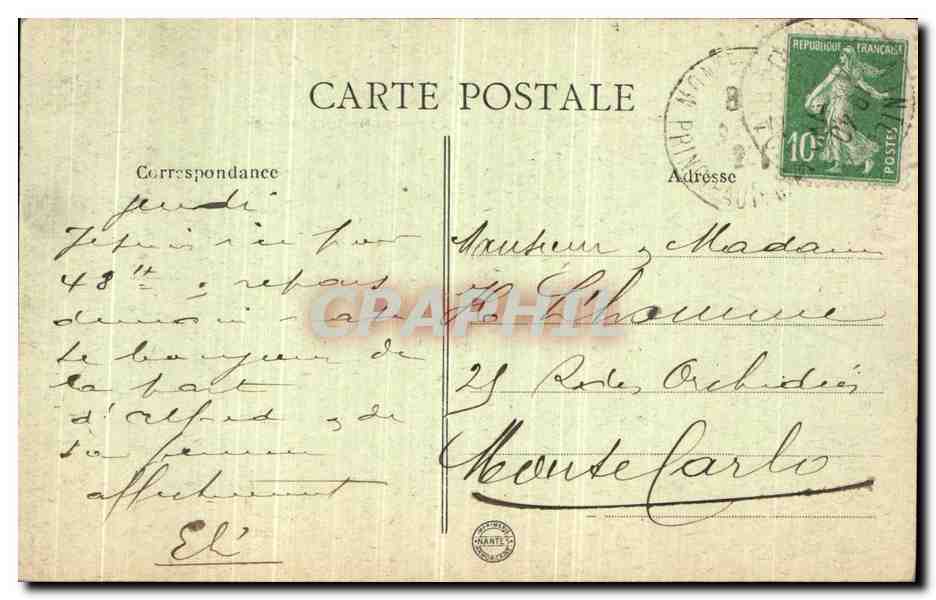 CARTE POSTALE
REPUBLIQUE FRANÇAISE
10
POSTES
Correspondance
jeudi
Je suis ici pour
48 H repars
demain
le bonjour de
la part
d'Alfred & de
sa femme
affectueusement
Adresse
Monsieur & Madame
Lhomme
25 R des Orchidées
Monte Carlo
NANTES
CPAPHIL